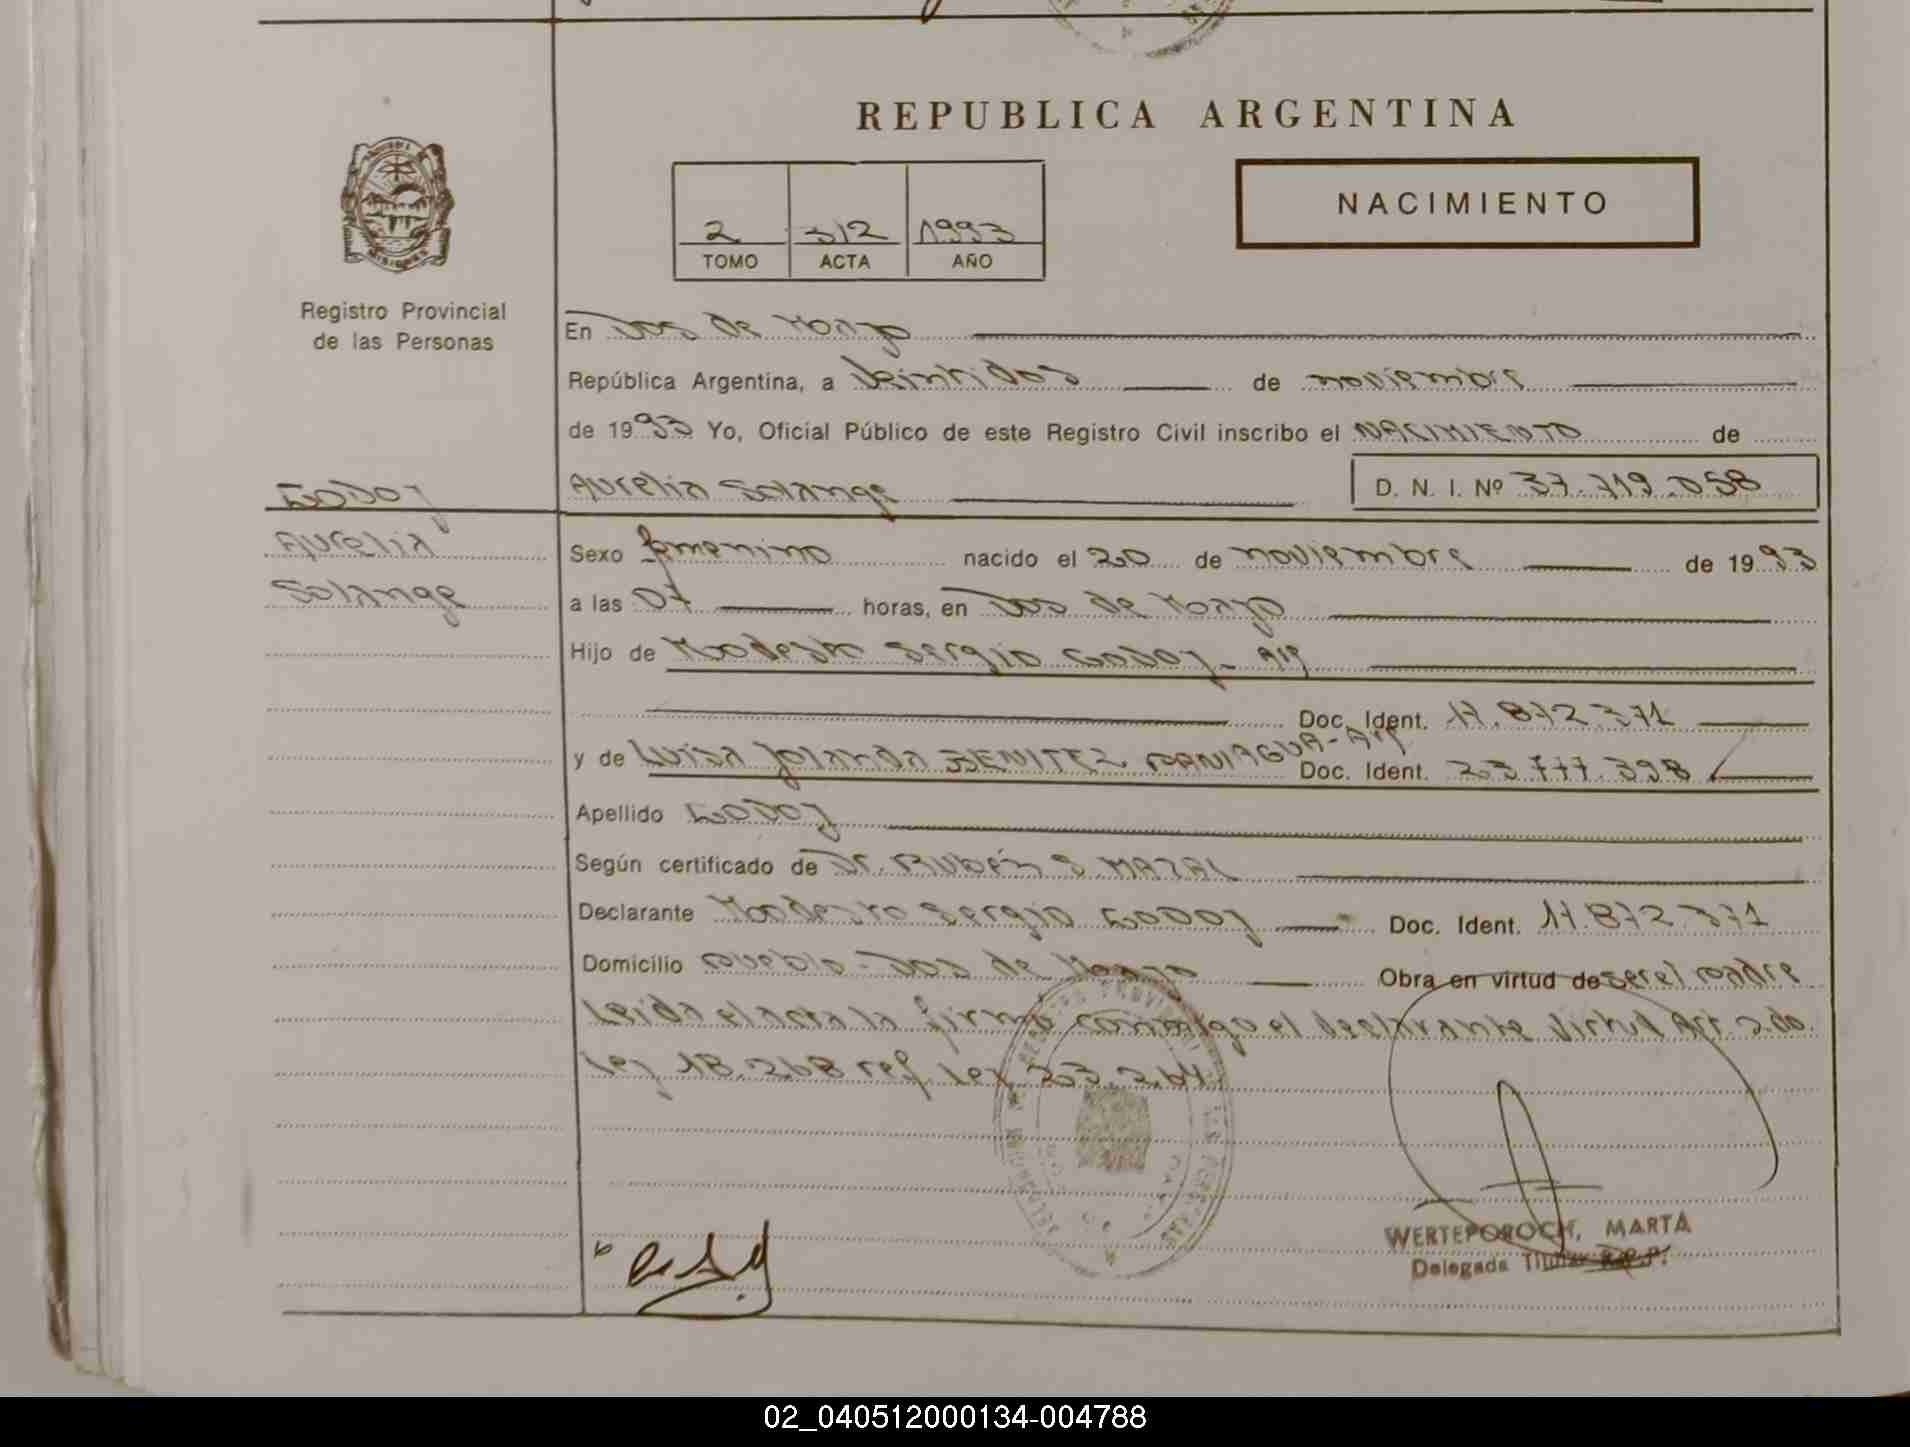 REPUBLICA ARGENTINA
NACIMIENTO
2 312 1993
TOMO ACTA AÑO
Registro Provincial
de las Personas
En Dos de Mayo
República Argentina, a veintidos de noviembre
de 1993 Yo, Oficial Público de este Registro Civil inscribo el NACIMIENTO de
Godoy
Aurelia Solange D. N. I. Nº 37.719.058
Aurelia
Solange
Sexo femenino nacido el 20 de noviembre de 1993
a las 07 horas, en Dos de Mayo
Hijo de Modesto Sergio Godoy - Arg
Doc. Ident. 17.872.371
y de Luisa Yolanda BENITEZ PANIAGUA - Arg
Doc. Ident. 23.777.398
Apellido Godoy
Según certificado de Dr. Rubén S. MAZAL
Declarante Modesto Sergio Godoy Doc. Ident. 17.872.371
Domicilio Pueblo - Dos de Mayo Obra en virtud de ser el padre
Leida el acta la firma conmigo el declarante virtud Art 2do.
Ley 18.268 ref. Ley 23.264.
WERTEPOROCH, MARTA
Delegada Titular R.P.P.
02_040512000134-004788